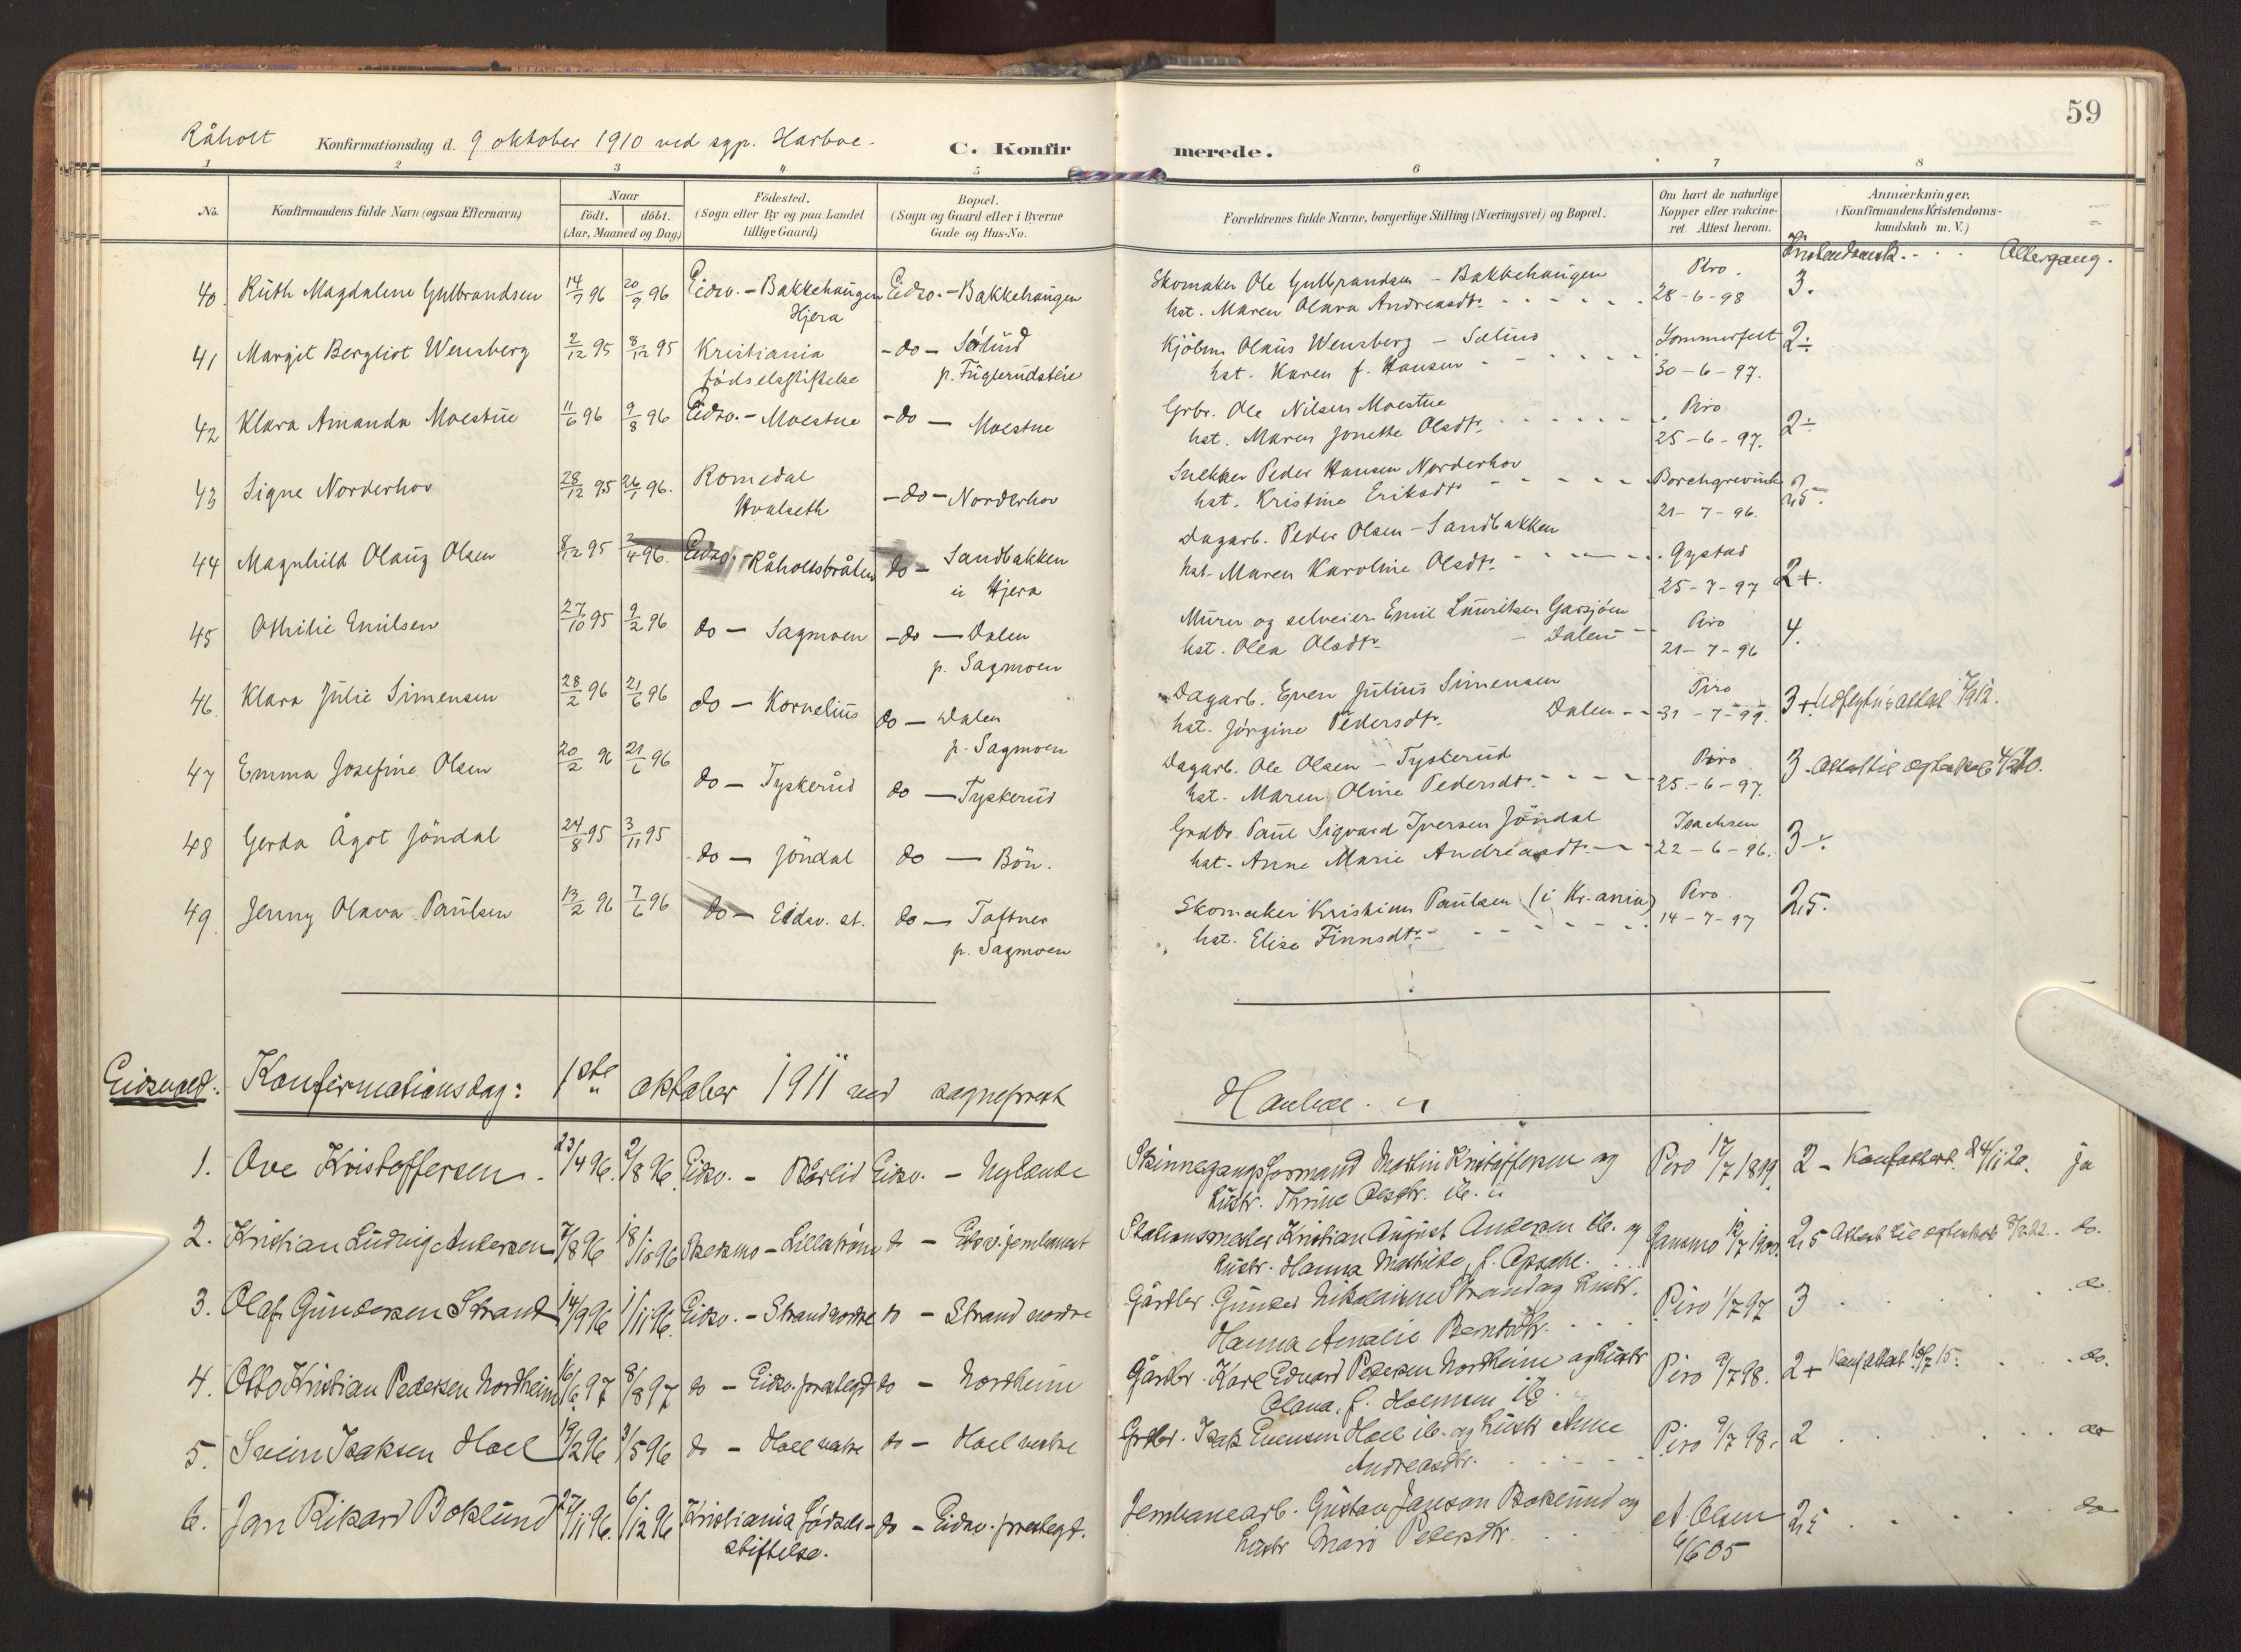 59
Råholt Konfirmationsdag d. 9 oktober 1910 ved sgp. Harboe.
C. Konfirmerede.
1 2 3 4 5 6 7 8
No. Konfirmandens fulde Navn (ogsaa Efternavn) Naar født. døbt. (Aar, Maaned og Dag.) Fødested. (Sogn eller By og paa Landet tillige Gaard.) Bopæl. (Sogn og Gaard eller i Byerne Gade og Hus-No. Forældrenes fulde Navne, borgerlige Stilling (Næringsvei) og Bopæl. Om havt de naturlige Kopper eller vakcineret Attest herom. Anmærkninger. (Konfirmandens Kristendomskundskab m. V.)
Altergang.
40. Ruth Magdalene Gulbrandsen 14/7 96 20/9 96 Eidsv. - Bakkehaugen Eidsv. - Bakkehaugen Skomaker Ole Gulbrandsen - Bakkehaugen Piro. 3.
Hjera hst. Maren Olava Andreasdtr. 28-6-98
41 Margit Bergliot Wensberg 2/12 95 8/12 95 Kristiania -do- Sølund Kjøbm. Olaus Wensberg - Sommerfelt 2÷
fødselsstiftelse p. Fuglerudsteie hst. Karen f. Hansen 30-6-97.
42 Klara Amanda Moestue 11/6 96 9/8 96 Eidsv. - Moestue -do- Moestue Grbr. Ole Nilsen Moestue Piro 2÷
hst. Maren Jonette Olsdtr. 25-6-97.
43 Signe Norderhov 28/12 95 26/1 96. Romedal -do- Norderhov Snekker Peder Hansen Norderhov Borchgrevink 2,5.
Hvalseth hst. Kristine Eriksdtr 21-7-96.
44 Magnhild Olaug Olsen 8/12 95 2/4 96. Eidsv. - Råholtbråten do - Sandbakken Dagarb. Peder Olsen - Sandbakken Gystad 2+.
i Hjera hst. Maren Karoline Olsdtr. 25-7-97
45 Othilie Emilsen 27/10 95 9/2 96 do - Sagmoen -do- Dalen Murer og selveier Emil Lauritsen Garsjøen Piro 4.
p. Sagmoen hst. Olea Olsdtr - Dalen 21-7-96
46. Klara Julie Simensen 28/2 96 21/6 96 do - Kornelius do - Dalen Dagarb. Even Julius Simensen Piro 3+.
p. Sagmoen hst. Jørgine Pedersdtr. Dalen 31-7-99.
47 Emma Josefine Olsen 20/2 96 21/6 96 do - Tyskerud do - Tyskerud Dagarb. Ole Olsen - Tyskerud Piro 3.
hst. Maren Oline Pedersdtr. 25-6-97.
48 Gerda Ågot Jøndal 24/8 95 3/11 95 do - Jøndal do - Bøn. Grdbr. Paul Sigvard Iversen Jøndal Isachsen 3÷
hst. Anne Marie Andreasdtr. 22-6-96.
49. Jenny Olava Paulsen 13/2 96 7/6 96 do - Eidsv. st. do - Toftner Skomaker Kristian Paulsen (i Kr.ania) Piro. 2,5.
p. Sagmoen hst. Elise Finnsdtr 14-7-97
Eidsvold: Konfirmationsdag: 1ste oktober 1911 ved sogneprest Harboe.
1. Ove Kristoffersen 23/4 96. 2/8 96. Eidsv. - Bårlid Eidsv. - Nylende Skinnegangsformand Martin Kristoffersen og Piro 17/7 1899. 2 - Konf.attest. 24/11 20. ja
Hustr. Thrine Olesdtr. ib.
2. Kristian Ludvig Andersen 7/8 96 18/10 96 Skedsmo - Lillestrøm do - Eidsv. jernbanest Stationsmester Kristian August Andersen ib. og 12/7 1900. 2,5 do.
Hustr. Hanna Mathilde f. Opsahl.
3. Olaf Gundersen Strand 14/9 96 1/11 96. Eidsv. - Strand nordre do - Strand nordre Gårdbr. Gunder Nikolaisen Strand og Hustr. Piro 1/7 97 3 do
Hanna Amalie Berntsdtr.
4. Otto Kristian Pedersen Nordheim 16/6 97 8/8 97 do - Eidsv. prestegd do - Nordheim Gårdbr. Karl Edvard Pedersen Nordheim og Hustr Piro 9/7 98. 2+ Konf.attest 10/7 15. do.
Olava, f. Holmsen ib.
5. Svein Isaksen Hoel 19/2 96 3/5 96 do - Hoel vestre do - Hoel vestre Grdbr. Isak Evensen Hoel ib. og Hustr Anne Piro 9/7 98. 2 do
Andreasdtr.
6. Jan Rikard Boklund 27/11 96. 6/12 96 Kristiania Fødsels- do - Eidsv. prestegd. Jernbanearb. Gustav Janson Boklund og A. Olsen 2,5 do
stiftelse. Hustr Mari Pedersdtr. 9/6 05